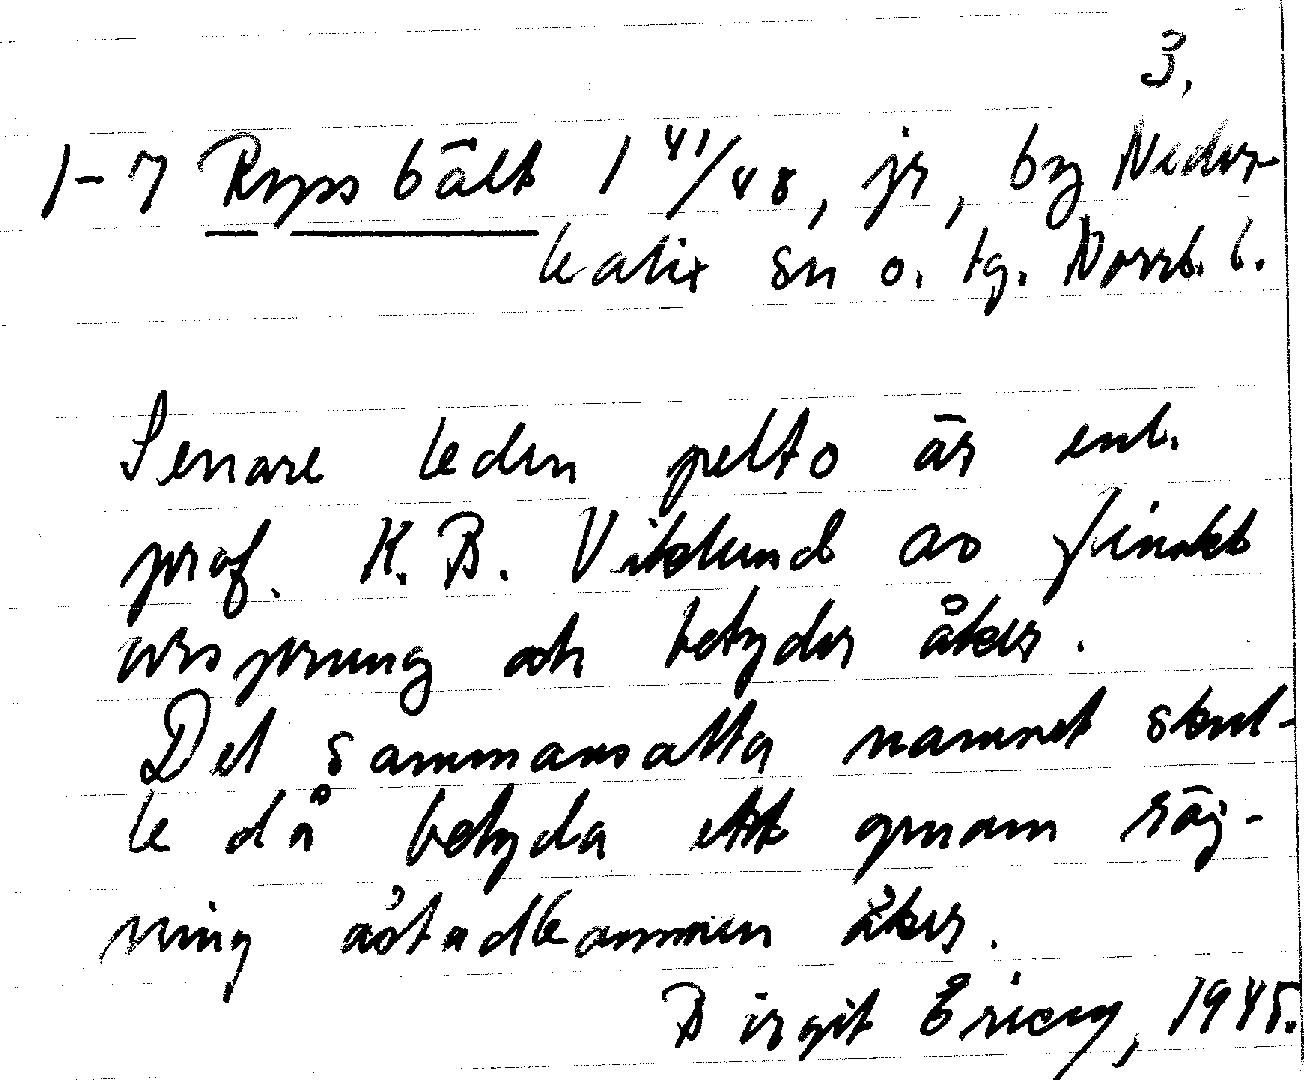 3.
1-7 Ryssbält 1 41/48, js, by Neder-
kalix sn o. tg. Norrb. l.
Senare leden pelto är enl.
prof. K.B. Viklund av finskt
ursprung och betyder åker.
Det sammansatta namnet skul-
le då betyda ett genom röj-
ning åstadkommen åker.
Birgit Ericy, 1945.